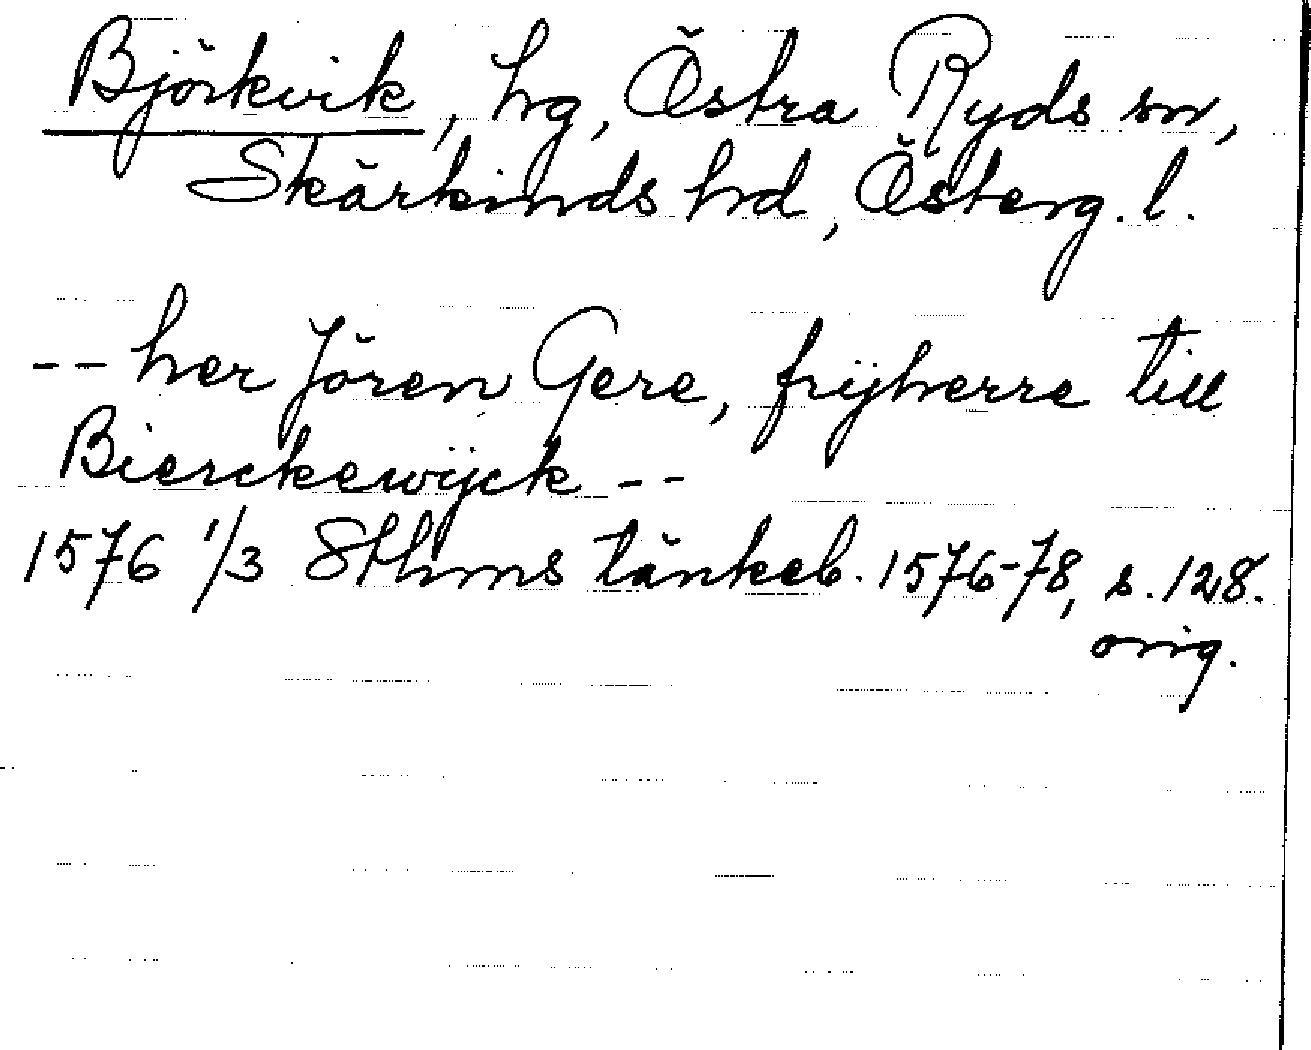 Björkvik, hg, Östra Ryds sn,
Skärkinds hrd, Österg. l.
-- her Jören Gere, frijherre till
Bierckewijck --
1576 1/3 Sthms tänkeb. 1576-78, s. 128.
orig.